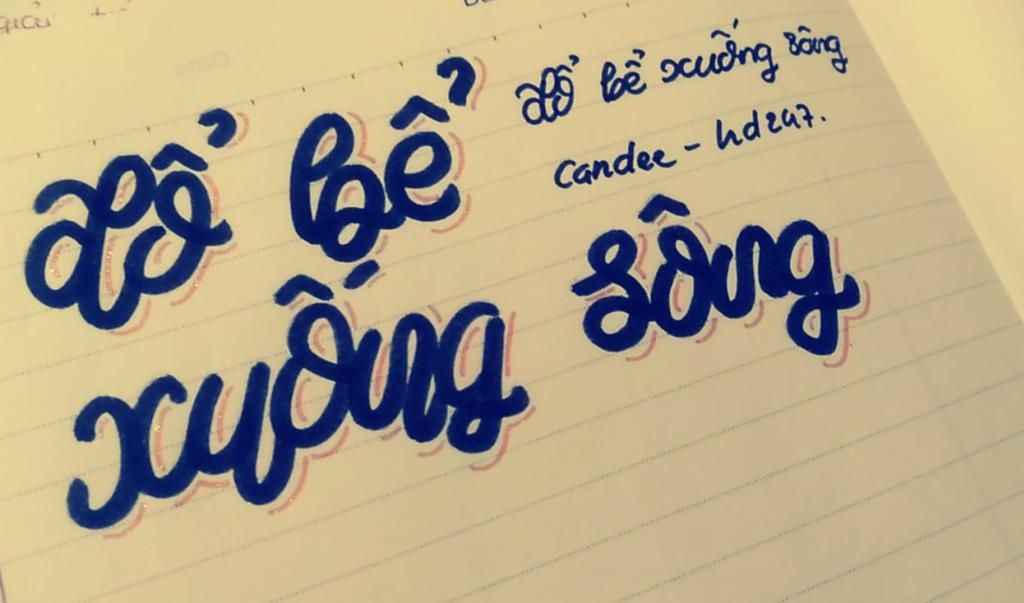 đổ bể xuống sông
candee - hd247.
đổ bể
xuống sông